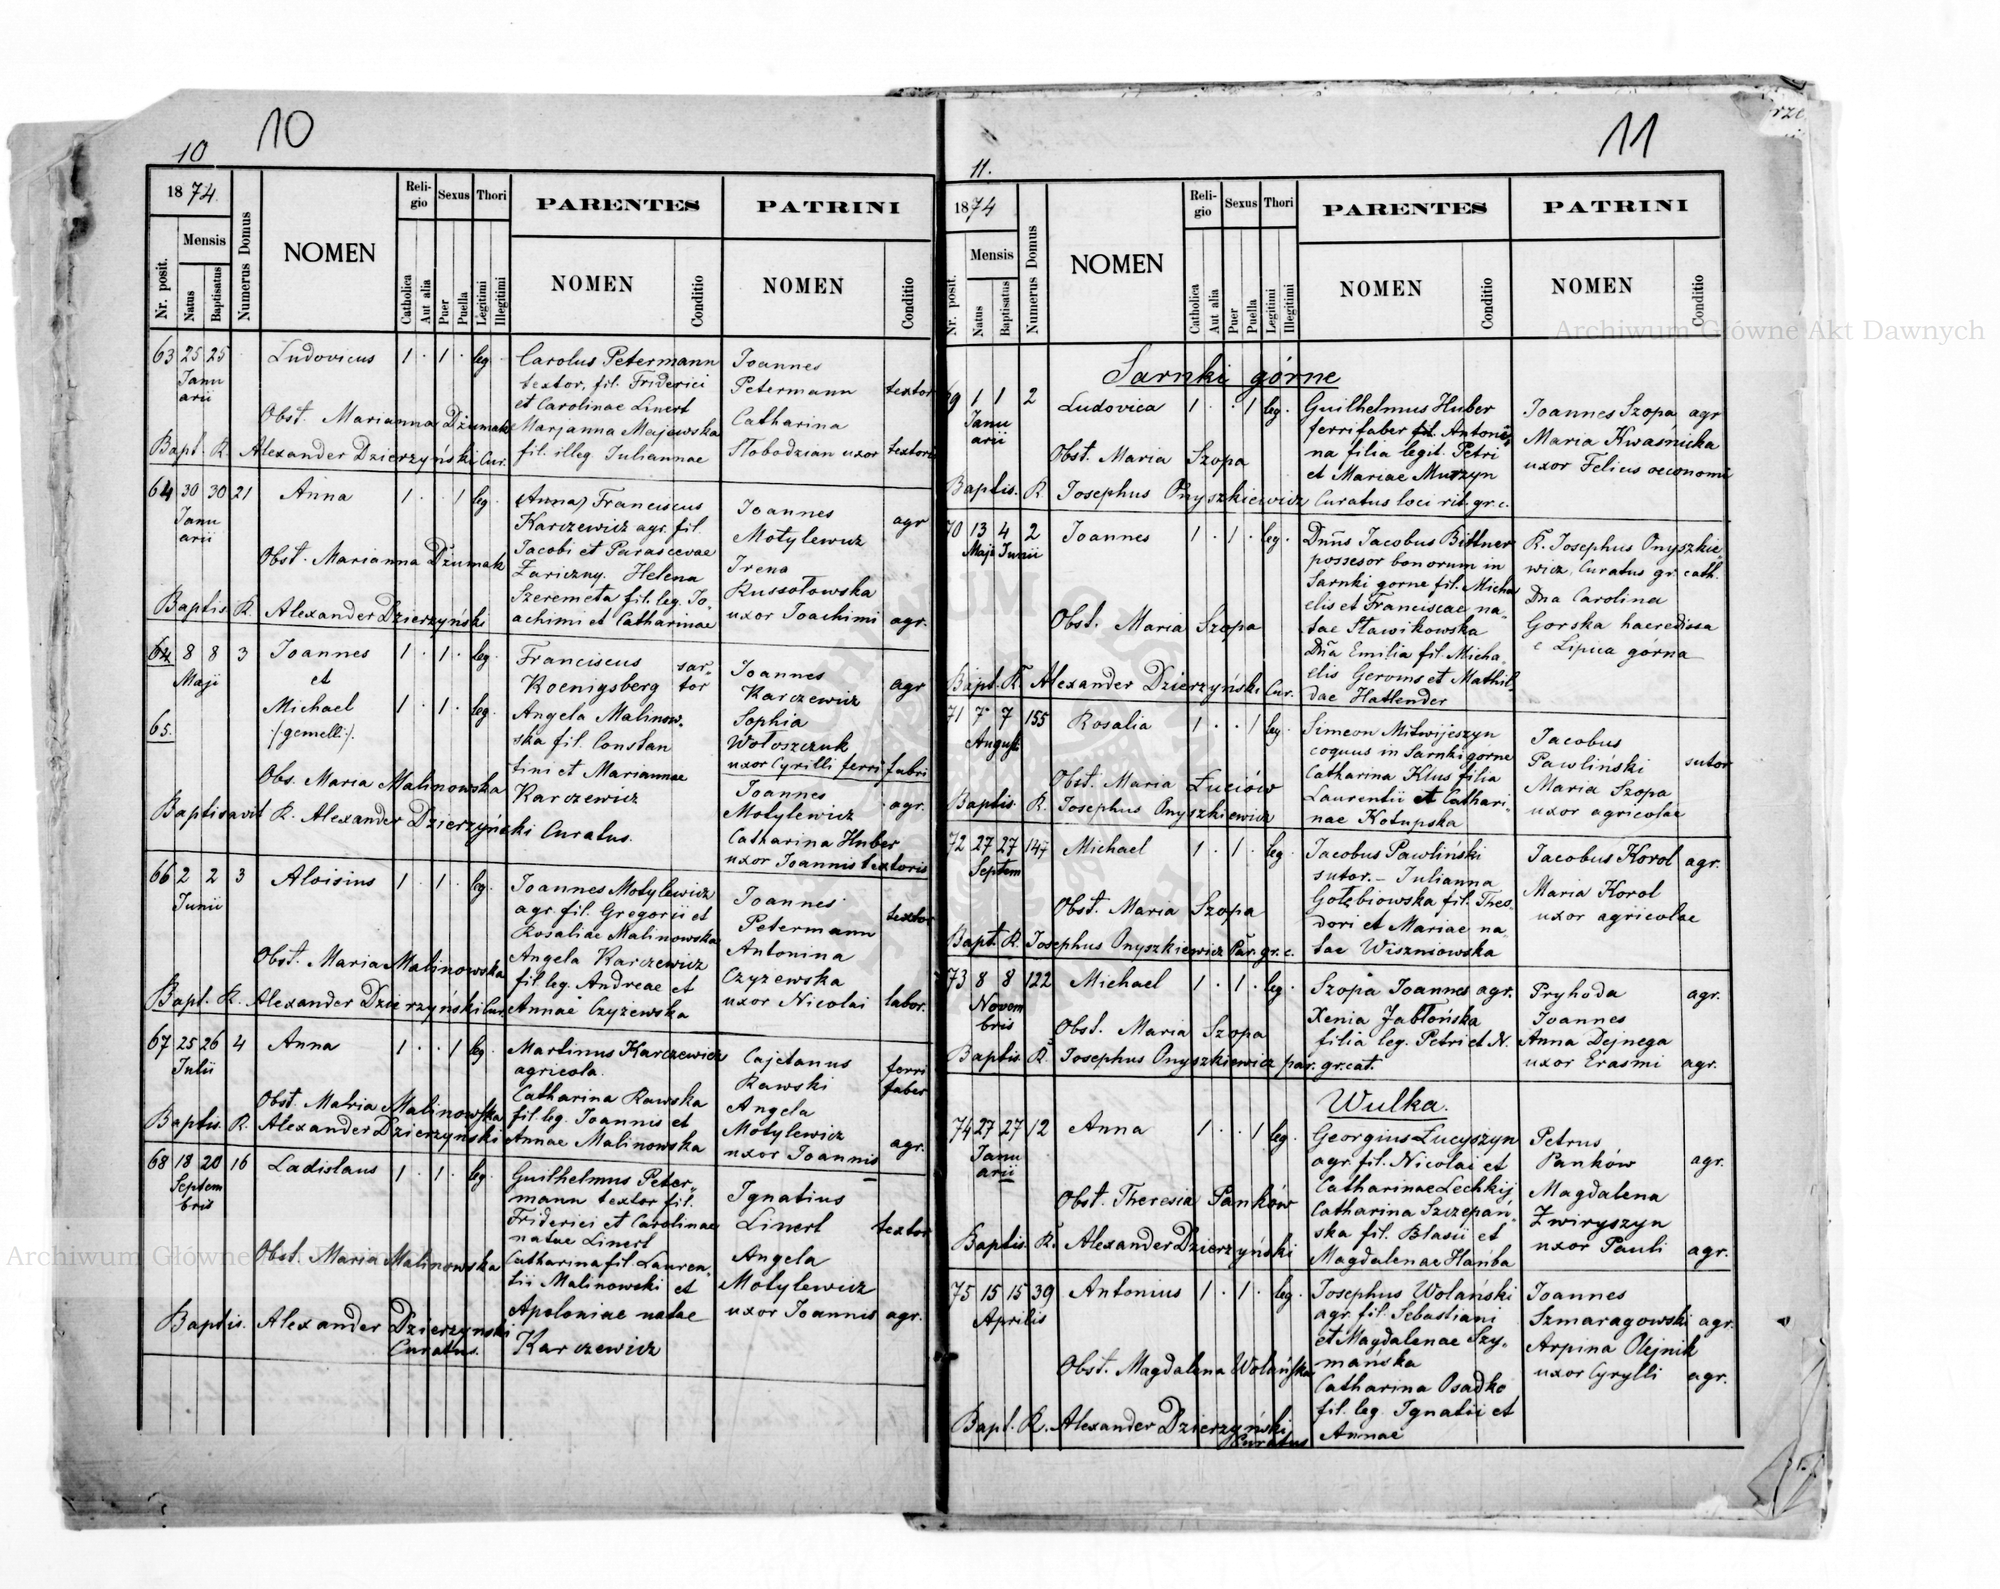 10
10
1874.
Nr. posit.
Mensis
Natus
Baptisatus
Numerus Domus
NOMEN
Reli-
gio
Catholica
Aut alia
Sexus
Puer
Puella
Thori
Legitimi
Illegitimi
PARENTES
NOMEN
Conditio
PATRINI
NOMEN
Conditio
63 25 25 Ludovicus 1 . 1 . leg. Carolus Petermann Joannes
Janu textor, fil. Friderici Petermann textor
arii et Carolinae Linert
Obst. Marianna Dżumak Marjanna Majewska Catharina
Bapt. K. Alexander Dzierzyński Cur. fil. illeg. Juliannae Słobodzian uxor textoris
64 30 30 21 Anna 1 . . 1 leg. (Anna) Franciscus Joannes
Janu Karczewicz agr. fil. Motylewicz agr
arii Jacobi et Parascevae
Obst. Marianna Dżumak Zariczny. Helena Irena
Szeremeta fil. leg. Jo- Russołowska
Baptis. K. Alexander Dzierzyński achimi et Catharinae uxor Joachimi agr.
64 8 8 3 Joannes 1 . 1 . leg. Franciscus sar- Joannes
Maji et Koenigsberg tor Karczewicz agr
Michael 1 . 1 . leg. Angela Malinow- Sophia
65. /:gemelli:/. ska fil. Constan Wołoszczuk
tini et Mariannae uxor Cyrilli ferri fabri
Obs. Maria Malinowska Karczewicz Joannes
Motylewicz agr.
Baptisavit K. Alexander Dzierzyński Curatus. Catharina Huber
uxor Joannis textoris
66 2 2 3 Aloisius 1 . 1 . leg. Joannes Motylewicz Joannes
Junii agr. fil. Gregorii et Petermann textor
Rosaliae Malinowska
Obst. Maria Malinowska Angela Karczewicz Antonina
fil. leg. Andreae et Czyżewska
Bapt. K. Alexander Dzierzyński Cur. Annae Czyżewska uxor Nicolai labor.
67 25 26 4 Anna 1 . . 1 leg. Martinus Karczewicz Cajetanus ferri
Julii agricola. Rawski faber
Obst. Maria Malinowska Catharina Rawska Angela
fil. leg. Joannis et Motylewicz
Baptis. K. Alexander Dzierzyński Annae Malinowska uxor Joannis agr.
68 18 20 16 Ladislaus 1 . 1 . leg. Guilhelmus Peter-
Septem mann textor fil. Ignatius
bris Friderici et Carolinae Linert textor
natae Linert
Obst. Maria Malinowska Catharina fil. Lauren- Angela
tii Malinowski et Motylewicz
Baptis. Alexander Dzierzynski Apoloniae natae uxor Joannis agr.
Curatus. Karczewicz
11
11.
1874
Nr. posit.
Mensis
Natus
Baptisatus
Numerus Domus
NOMEN
Reli-
gio
Catholica
Aut alia
Sexus
Puer
Puella
Thori
Legitimi
Illegitimi
PARENTES
NOMEN
Conditio
PATRINI
NOMEN
Conditio
Sarnki górne
69 1 1 2 Ludovica 1 . . 1 leg. Guilhelmus Huber Joannes Szopa agr
Janu ferrifaber fil. Antoni-
arii na filia legit. Petri Maria Kwaśnicka
Obst. Maria Szopa et Mariae Murzyn uxor Felicis oeconomi
Baptis. K Josephus Onyszkiewicz Curatus loci rit. gr. c.
70 13 4 2 Joannes 1 . 1 . leg. Dnus Jacobus Bittner K. Josephus Onyszkie
Maji Junii possesor bonorum in wicz, Curatus gr. cath.
Sarnki gorne fil. Micha Dna Carolina
elis et Franciscae na- Gorska haeredissa
Obst. Maria Szopa tae Sławikowska e Lipica górna
Dna Emilia fil. Micha-
Bapt. K. Alexander Dzierzyński Cur. elis Geroms et Mathil-
dae Hatlender
71 7 7 155 Rosalia 1 . . 1 leg. Simeon Mitwijeszyn Jacobus
August. coquus in Sarnki górne Pawliński sutor
Obst. Maria Łuciów Catharina Klus filia Maria Szopa
Baptis. K. Josephus Onyszkiewicz Laurentii et Cathari- uxor agricolae
nae Kotupska
72 27 27 147 Michael 1 . 1 . leg. Jacobus Pawliński Jacobus Korol agr.
Septem sutor. - Julianna Maria Korol
Obst. Maria Szopa Gołębiowska fil. Theo- uxor agricolae
dori et Mariae na-
Bapt. K. Josephus Onyszkiewicz Par. gr. c. tae Wiszniowska
73 8 8 122 Michael 1 . 1 . leg. Szopa Joannes agr. Pryhoda agr.
Novem Xenia Jabłońska Joannes
bris Obst. Maria Szopa filia leg. Petri et N. Anna Dejnega
Baptis. K. Josephus Onyszkiewicz par. gr. cat. uxor Erasmi agr.
Wulka.
74 27 27 12 Anna 1 . . 1 leg. Georgius Łucyszyn Petrus
Janu agr. fil. Nicolai et Panków agr.
arii Catharinae Lechkij Magdalena
Obst. Theresia Panków Catharina Szczepań- Żwiryszyn
ska fil. Blasii et uxor Pauli agr.
Baptis. K. Alexander Dzierzyński Magdalenae Hańba
75 15 15 39 Antonius 1 . 1 . leg. Josephus Wolański Joannes
Aprilis agr. fil. Sebastiani Szmaragowski agr.
et Magdalenae Szy- Arpina Olejnik
Obst. Magdalena Wolańska mańska uxor Cyrylli agr.
Catharina Osadko
Bapt. K. Alexander Dzierzyński fil. leg. Ignatii et
Curatus Annae
Archiwum Główne Akt Dawnych
Archiwum Główne Akt Dawnych